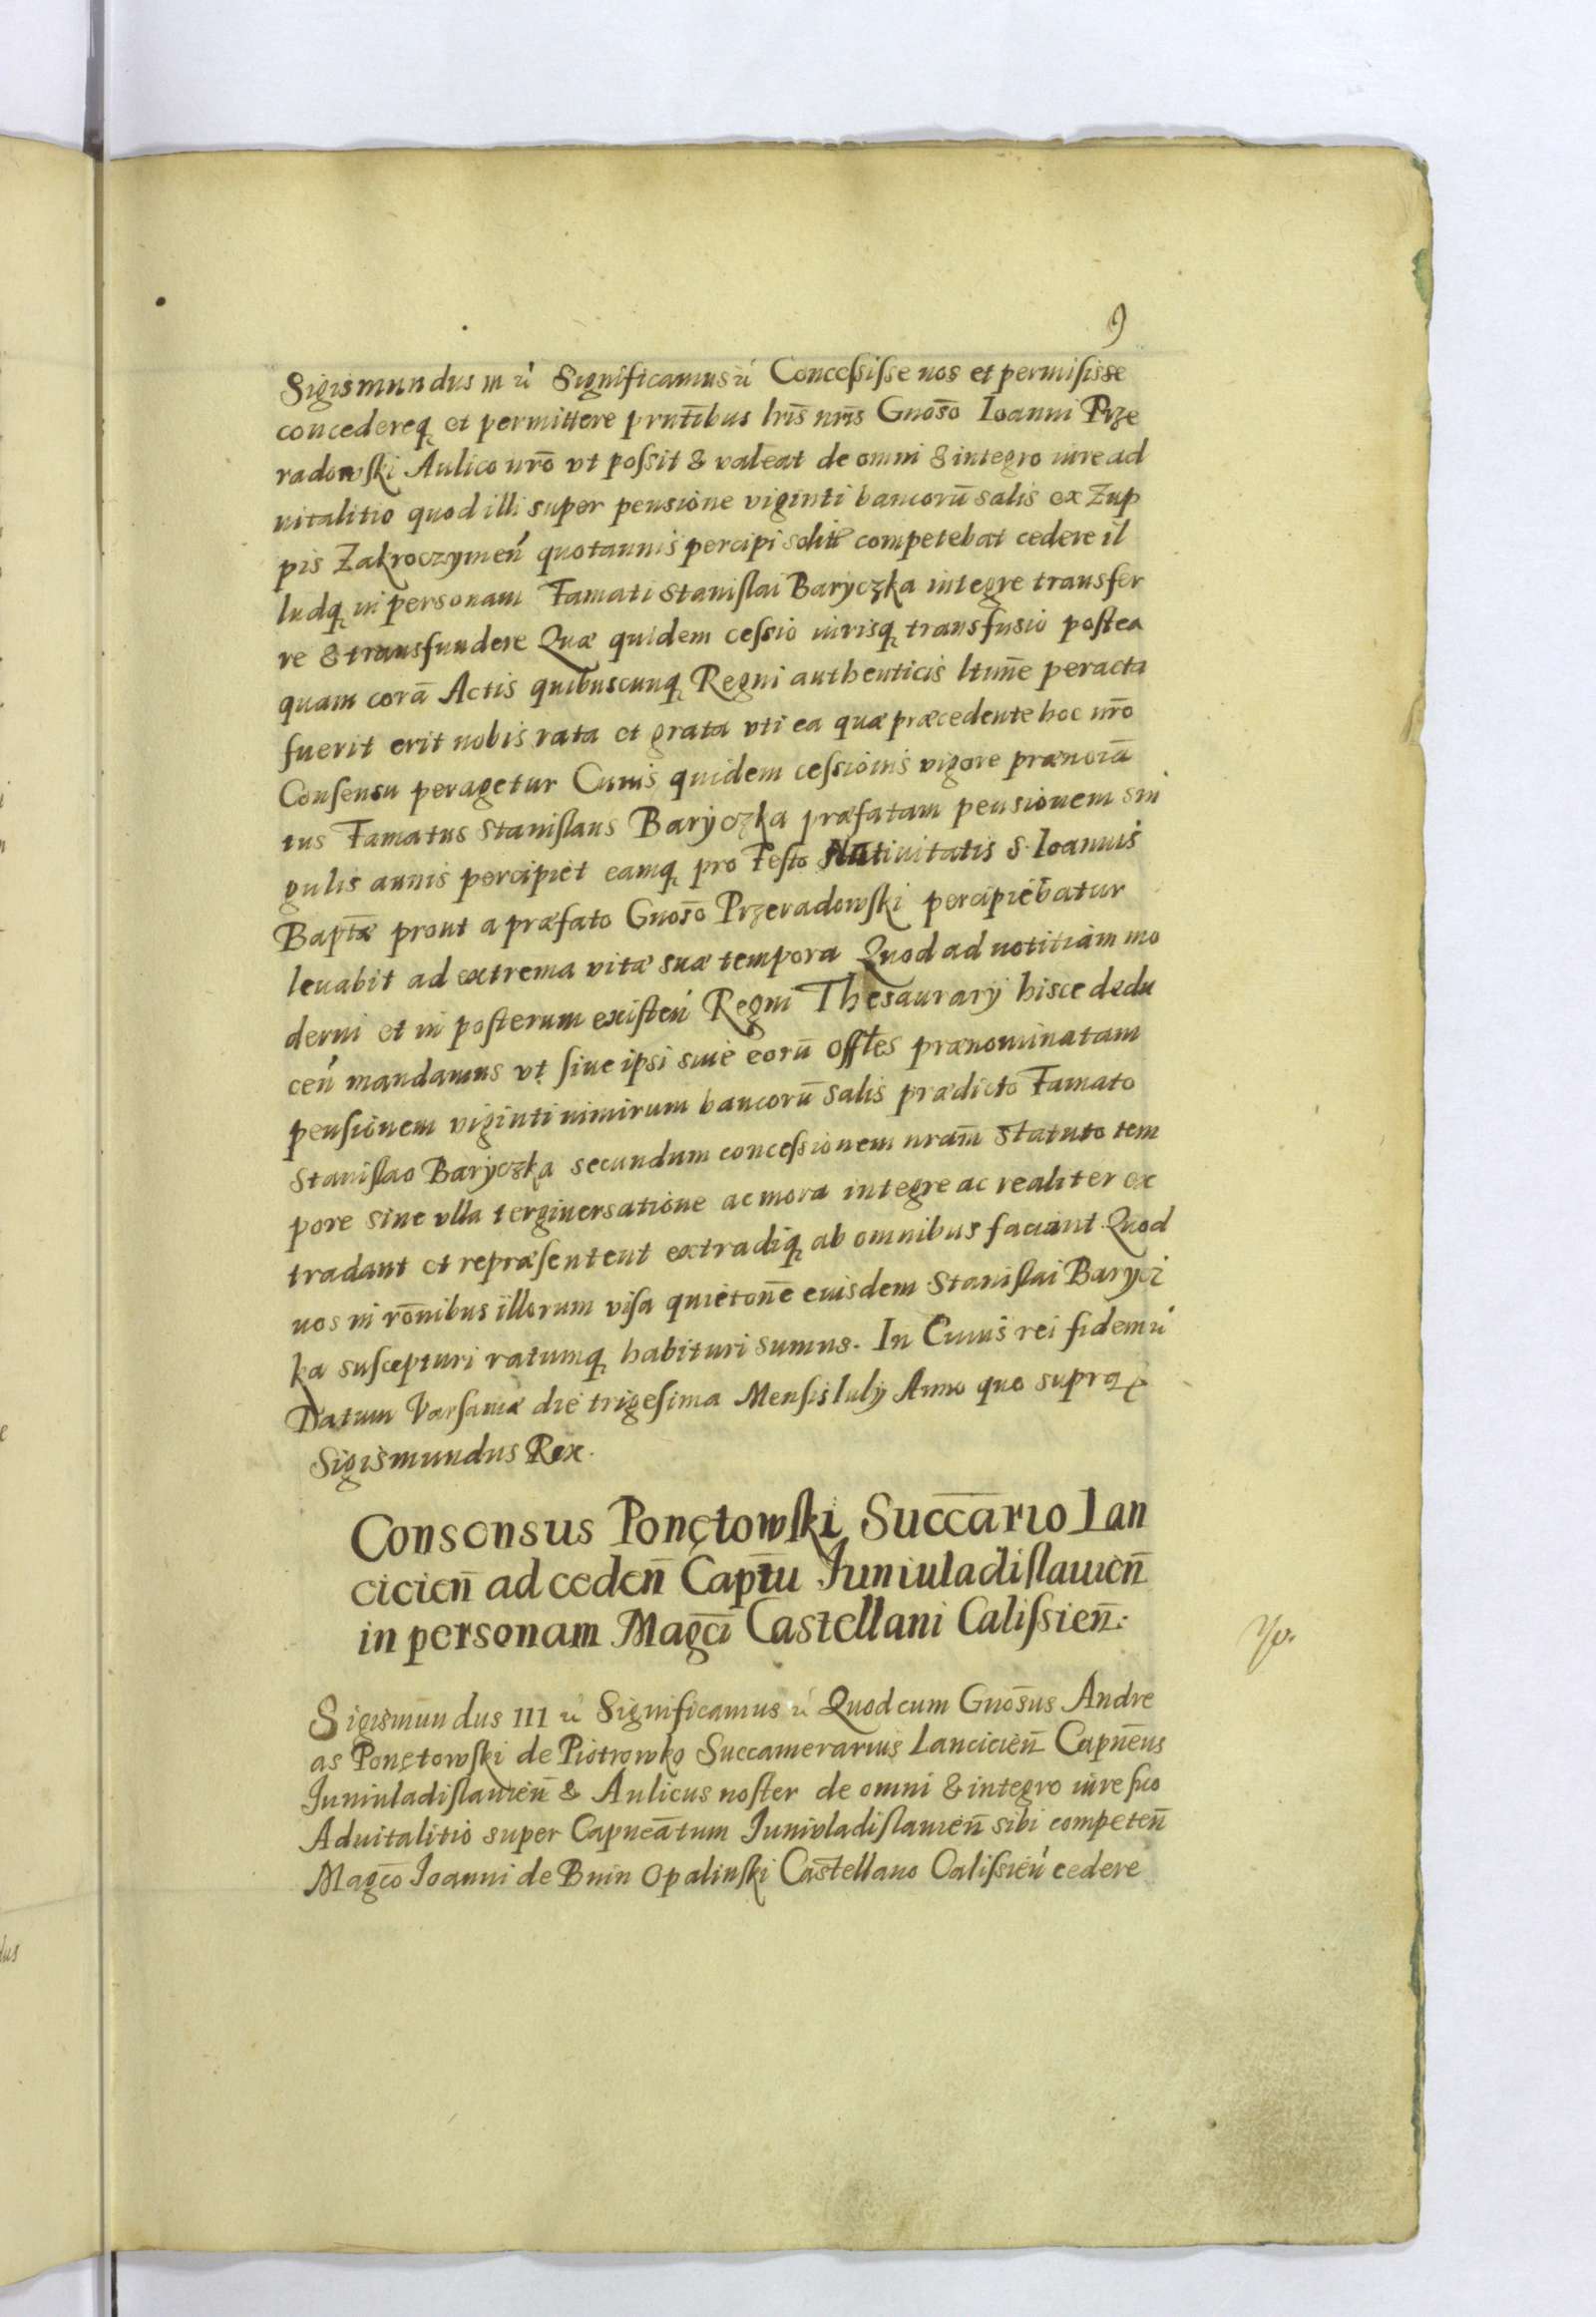 9
Sigismundus III ñ Significamus ñ Concessisse nos et permisisse
concedereq et permittere prntibus lris nris Gnoso Ioanni Prze
radowski Aulico nro vt possit & valeat de omni & integro iure ad
uitalitio quod illi super pensione viginti bancorū salis ex Zup
pis Zakroczymen quotannis percipi solitæ competebat cedere il
ludq in personam Famati Stanislai Baryczka integre transfer
re & transfundere Quæ quidem cessio iurisq transfusio postea
quam corā Actis quibuscunq Regni authenticis ltime peracta
fuerit erit nobis rata et grata vti ea quæ præcedente hoc nro
Consensu peragetur Cuius quidem cessionis vigore prænoīa
tus Famatus Stanislaus Baryczka præfatam pensionem sin
gulis annis percipiet eamq pro Festo Natiuitatis S. Ioannis
Baptæ prout a præfato Gnoso Przeradowski percipiebatur
leuabit ad extrema vitæ suæ tempora Quod ad notitiam mo
derni et in posterum existen Regni Thesaurarij hisce dedu
cen mandamus vt siue ipsi siue eorū Offles prænominatam
pensionem viginti nimirum bancorū salis prædicto Famato
Stanislao Baryczka secundum concessionem nram statuto tem
pore sine vlla tergiuersatione ac mora integre ac realiter ex
tradant et repræsentent extradiq ab omnibus faciant Quod
nos in ronibus illorum visa quietone eiusdem Stanislai Barycz
ka suscepturi ratumq habituri sumus. In Cuius rei fidem ñ
Datum Varsauiæ die trigesima Mensis Iulij Anno quo supra
Sigismundus Rex.
Consensus Ponętowski Succario Lan
cicien ad ceden Captu Iuniuladislauien
in personam Magci Castellani Calissien.
Sigismundus III ñ Significamus ñ Quod cum Gnosus Andre
as Ponętowski de Piotrowko Succamerarius Lancicien Capneus
Iuniuladislauien & Aulicus noster de omni & integro iure suo
Aduitalitio super Capneatum Iuniuladislauien sibi competen
Magco Ioanni de Bnin Opalinski Castellano Calissien cedere